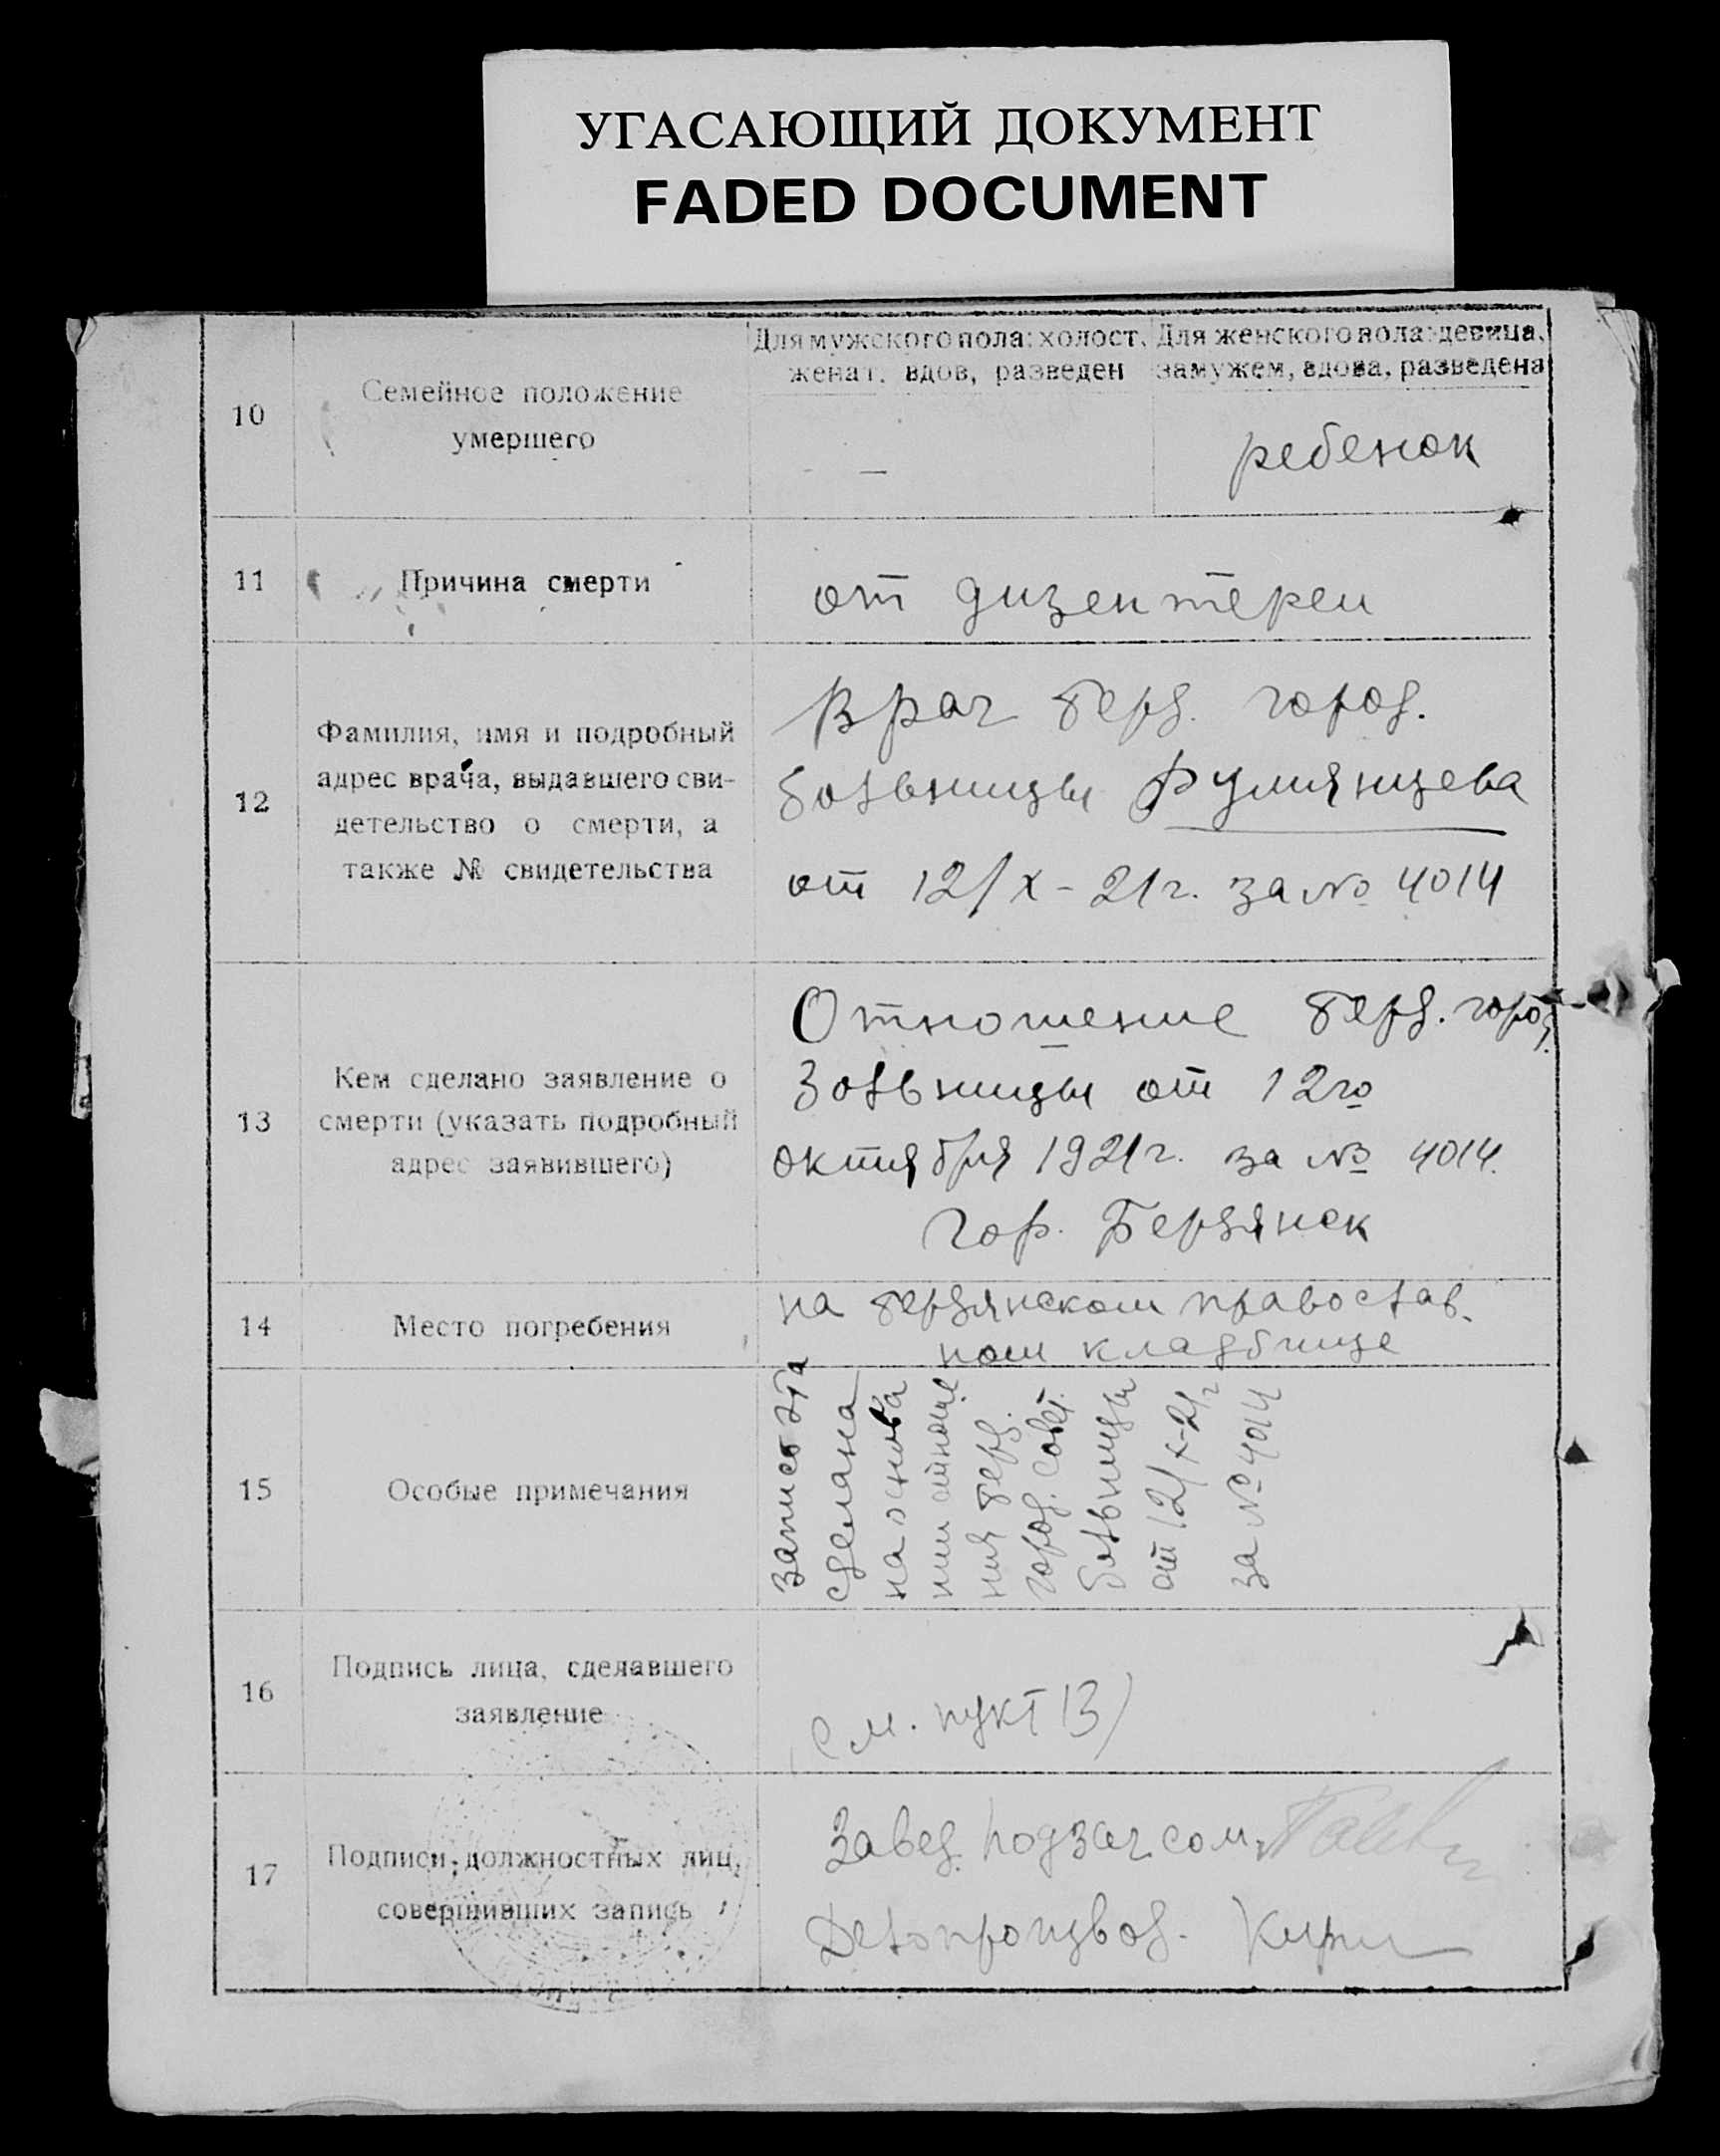 УГАСАЮЩИЙ ДОКУМЕНТ
FADED DOCUMENT
10
Семейное положение
умершего
Для мужского пола: холост,
женат, вдов, разведен
Для женского пола: девица,
замужем, вдова, разведена
—
ребенок
11
Причина смерти
от дизентереи
12
Фамилия, имя и подробный
адрес врача, выдавшего сви-
детельство о смерти, а
также № свидетельства
Врач берд. город.
больницы Румянцева
от 12/X-21г. за № 4014
13
Кем сделано заявление о
смерти (указать подробный
адрес заявившего)
Отношение берд. город.
больницы от 12го
октября 1921г. за № 4014.
гор. Бердянск
14
Место погребения
на бердянском православ-
ном кладбище
15
Особые примечания
запись эта
сделана
на основа
нии отноше
ния берд.
город. совет.
больницы
от 12/X-21г
за № 4014
16
Подпись лица, сделавшего
заявление
(см. пункт 13)
17
Подписи должностных лиц,
совершивших запись
Завед. подзагсом
Делопроизвод.